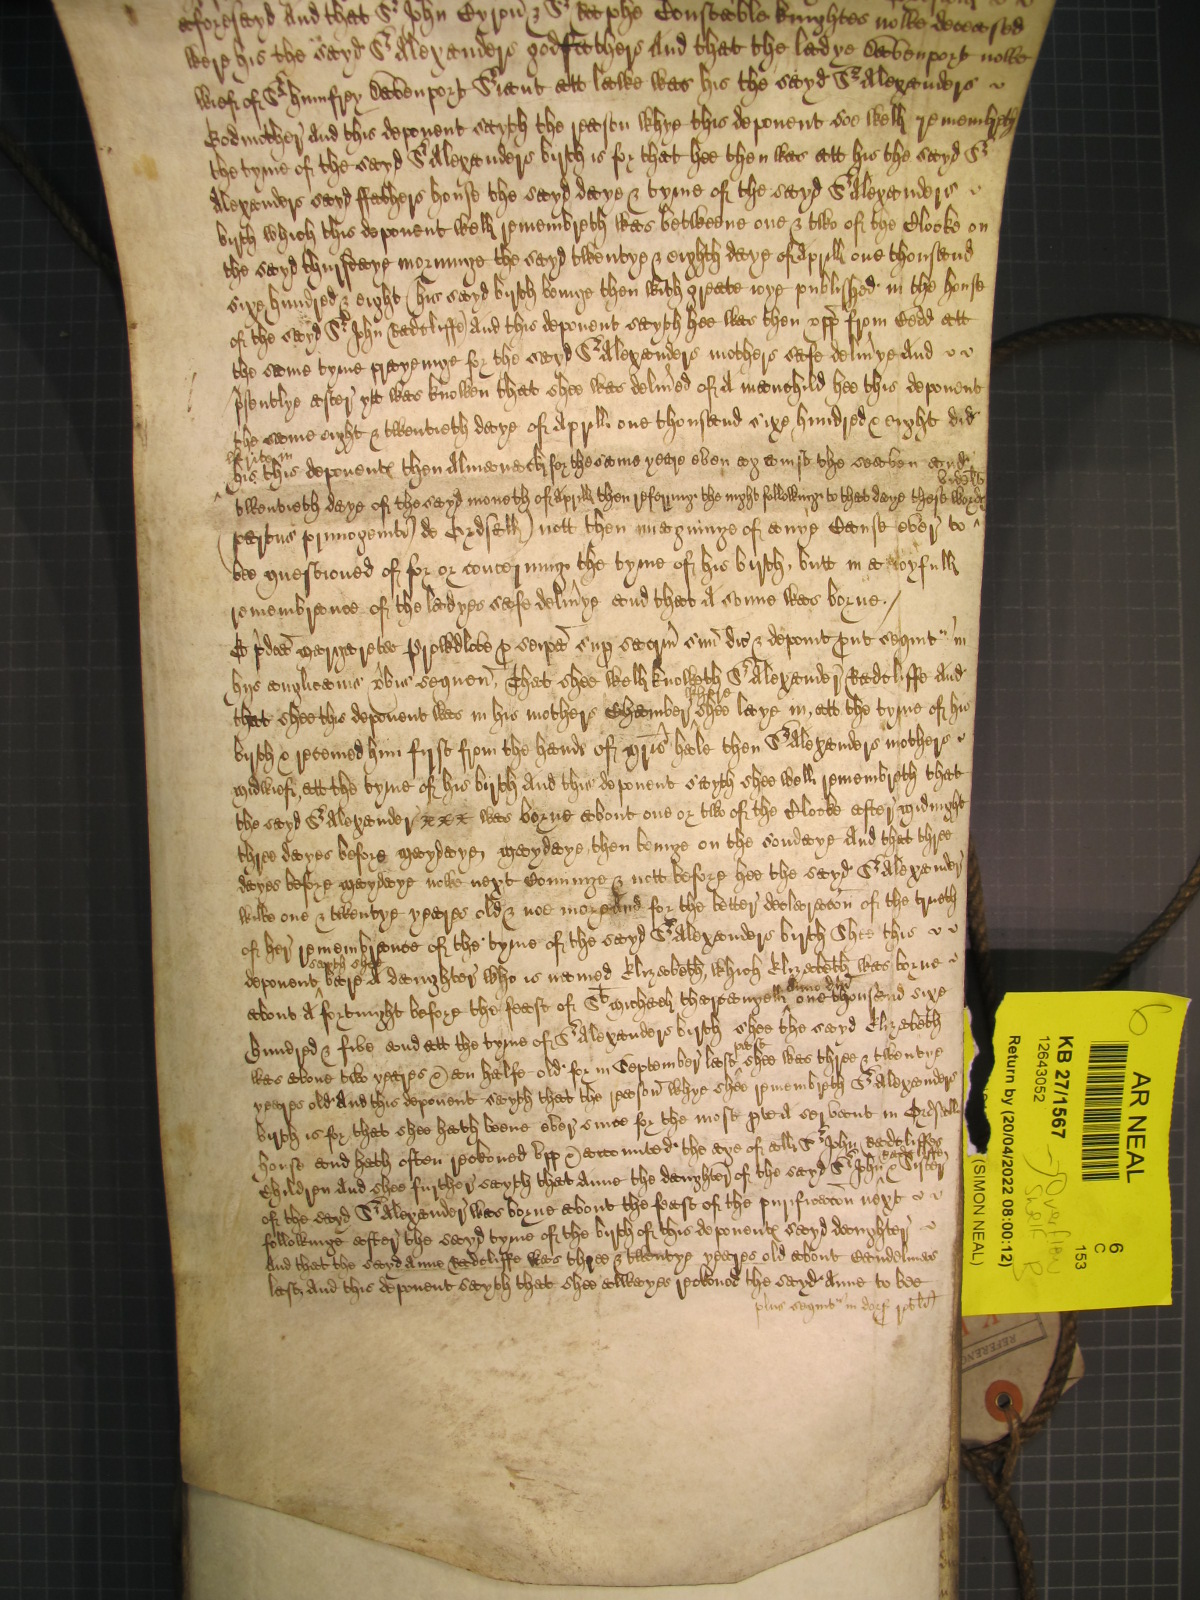 aforesayd And that Sr John Byron & Sr Raphe Constable knightes nowe deceased
were his the sayd Sr Alexanders godfathers And that the ladye Davenport nowe
wief of Sr Humfrey Davenport Sriant att lawe was his the sayd Sr Alexanders
Godmother And this deponent sayth the reason whye this deponent soe well remembryth
the tyme of the sayd Sr Alexanders birth is for that hee then was att his the sayd Sr
Alexanders sayd ffathers house the sayd daye & tyme of the sayd Sr Alexanders
birth which this deponent well remembreth was betweene one & two of the Clocke on
the sayd thursdaye morninge the sayd twentye & eighth daye of Aprill one thousand
sixe hundred & eight (his sayd birth beinge then with greate ioye published in the house
of the sayd Sr John Radcliffe) And this deponent sayth hee was then vpp from bedd att
the same tyme prayenge for the sayd Sr Alexanders mothers safe delivrye And
psentlye after yt was knowen that shee was delived of A manchild hee this deponent
the same eight & twentieth daye of Aprill one thousand sixe hundred & eight did
write in
his this deponents then Almanack for the same yeare even against the seaven and
twentieth daye of the sayd moneth of Aprill then referringe the night followinge to that daye these words
(partus primogeniti de Ordsall) nott then imagininge of anye Cause ever to
bee questioned of for or concerninge the tyme of his birth, butt in a ioyfull
remembrance of the ladyes safe delivrye and that A sonne was borne./
Et pdca Margareta Prowdlove sup sacrm suu dic & deponit put sequitr in
hys anglicanis vbis sequen, That shee well knoweth Sr Alexander Radcliffe And
that shee this deponent was in his mothers Chamber where shee laye in, att the tyme of his
birth & receaved him first from the hands of Mris hale then Sr Alexanders mothers
midwief, att the tyme of his birth And this deponent sayth shee well remembreth that
the sayd Sr Alexander xxx was borne about one or two of the Clocke after midnight
three dayes before Maydaye, Maydaye then beinge on the sondaye And that three
dayes before Maydaye nowe next Comminge & nott before hee the sayd Sr Alexander
wilbe one & twentye yeares old & noe more And for the better declaracon of the trueth
of her remembrance of the tyme of the sayd Sr Alexanders birth Shee this
deponent sayth shee bare A daughter who is named Elizabeth, which Elizabeth was borne
about A fortnight before the feast of St Michaell tharcangell Anno dni one thousand sixe
hundred & five and att the tyme of Sr Alexanders birth shee the sayd Elizabeth
was above two yeares & an halfe old for in September last past shee was three & twentye
yeares old And this deponent sayth that the reason whye shee remembreth Sr Alexanders
birth is for that shee hath beene ever since for the most pte A servant in Ordsall
house and hath often reckoned vpp & accounted the age of all Sr John Radcliffes
Children And shee further sayth that Anne the daughter of the sayd Sr John Radcliffe & Sister
of the sayd Sr Alexander was borne about the feast of the purificacon next
followinge after the sayd tyme of the birth of this deponents sayd daughter
And that the sayd Anne Radcliffe was three & twentye yeares old about Candelmas
last, And this deponent sayth that shee allwayes reckoned the sayd Anne to bee
plus sequitr in dorso rotli
AR NEAL
6
C
153
KB 27/1567
12643052
Return by (20/04/2022 08:00:12)
(SIMON NEAL)
6
Overflow
Shelf B
REFERENC